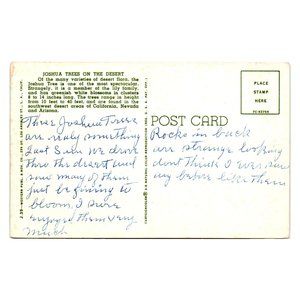 JOSHUA TREES ON THE DESERT
Of the many varieties of desert flora, the
Joshua Tree is one of the most spectacular.
Strangely, it is a member of the lily family,
and has greenish white blossoms in clusters
8 to 14 inches long. The trees range in height
from 10 feet to 40 feet, and are found in the
southwest desert areas of California, Nevada
and Arizona.
These Joshua Trees
are really something
Last Sun. we drove
thru the desert and
saw many of them
just be fixing to
bloom. I sure
enjoyed them very
much
PLACE
STAMP
HERE
POST CARD
Rocks in back
are strange looking
dont think I ever saw
any before like them